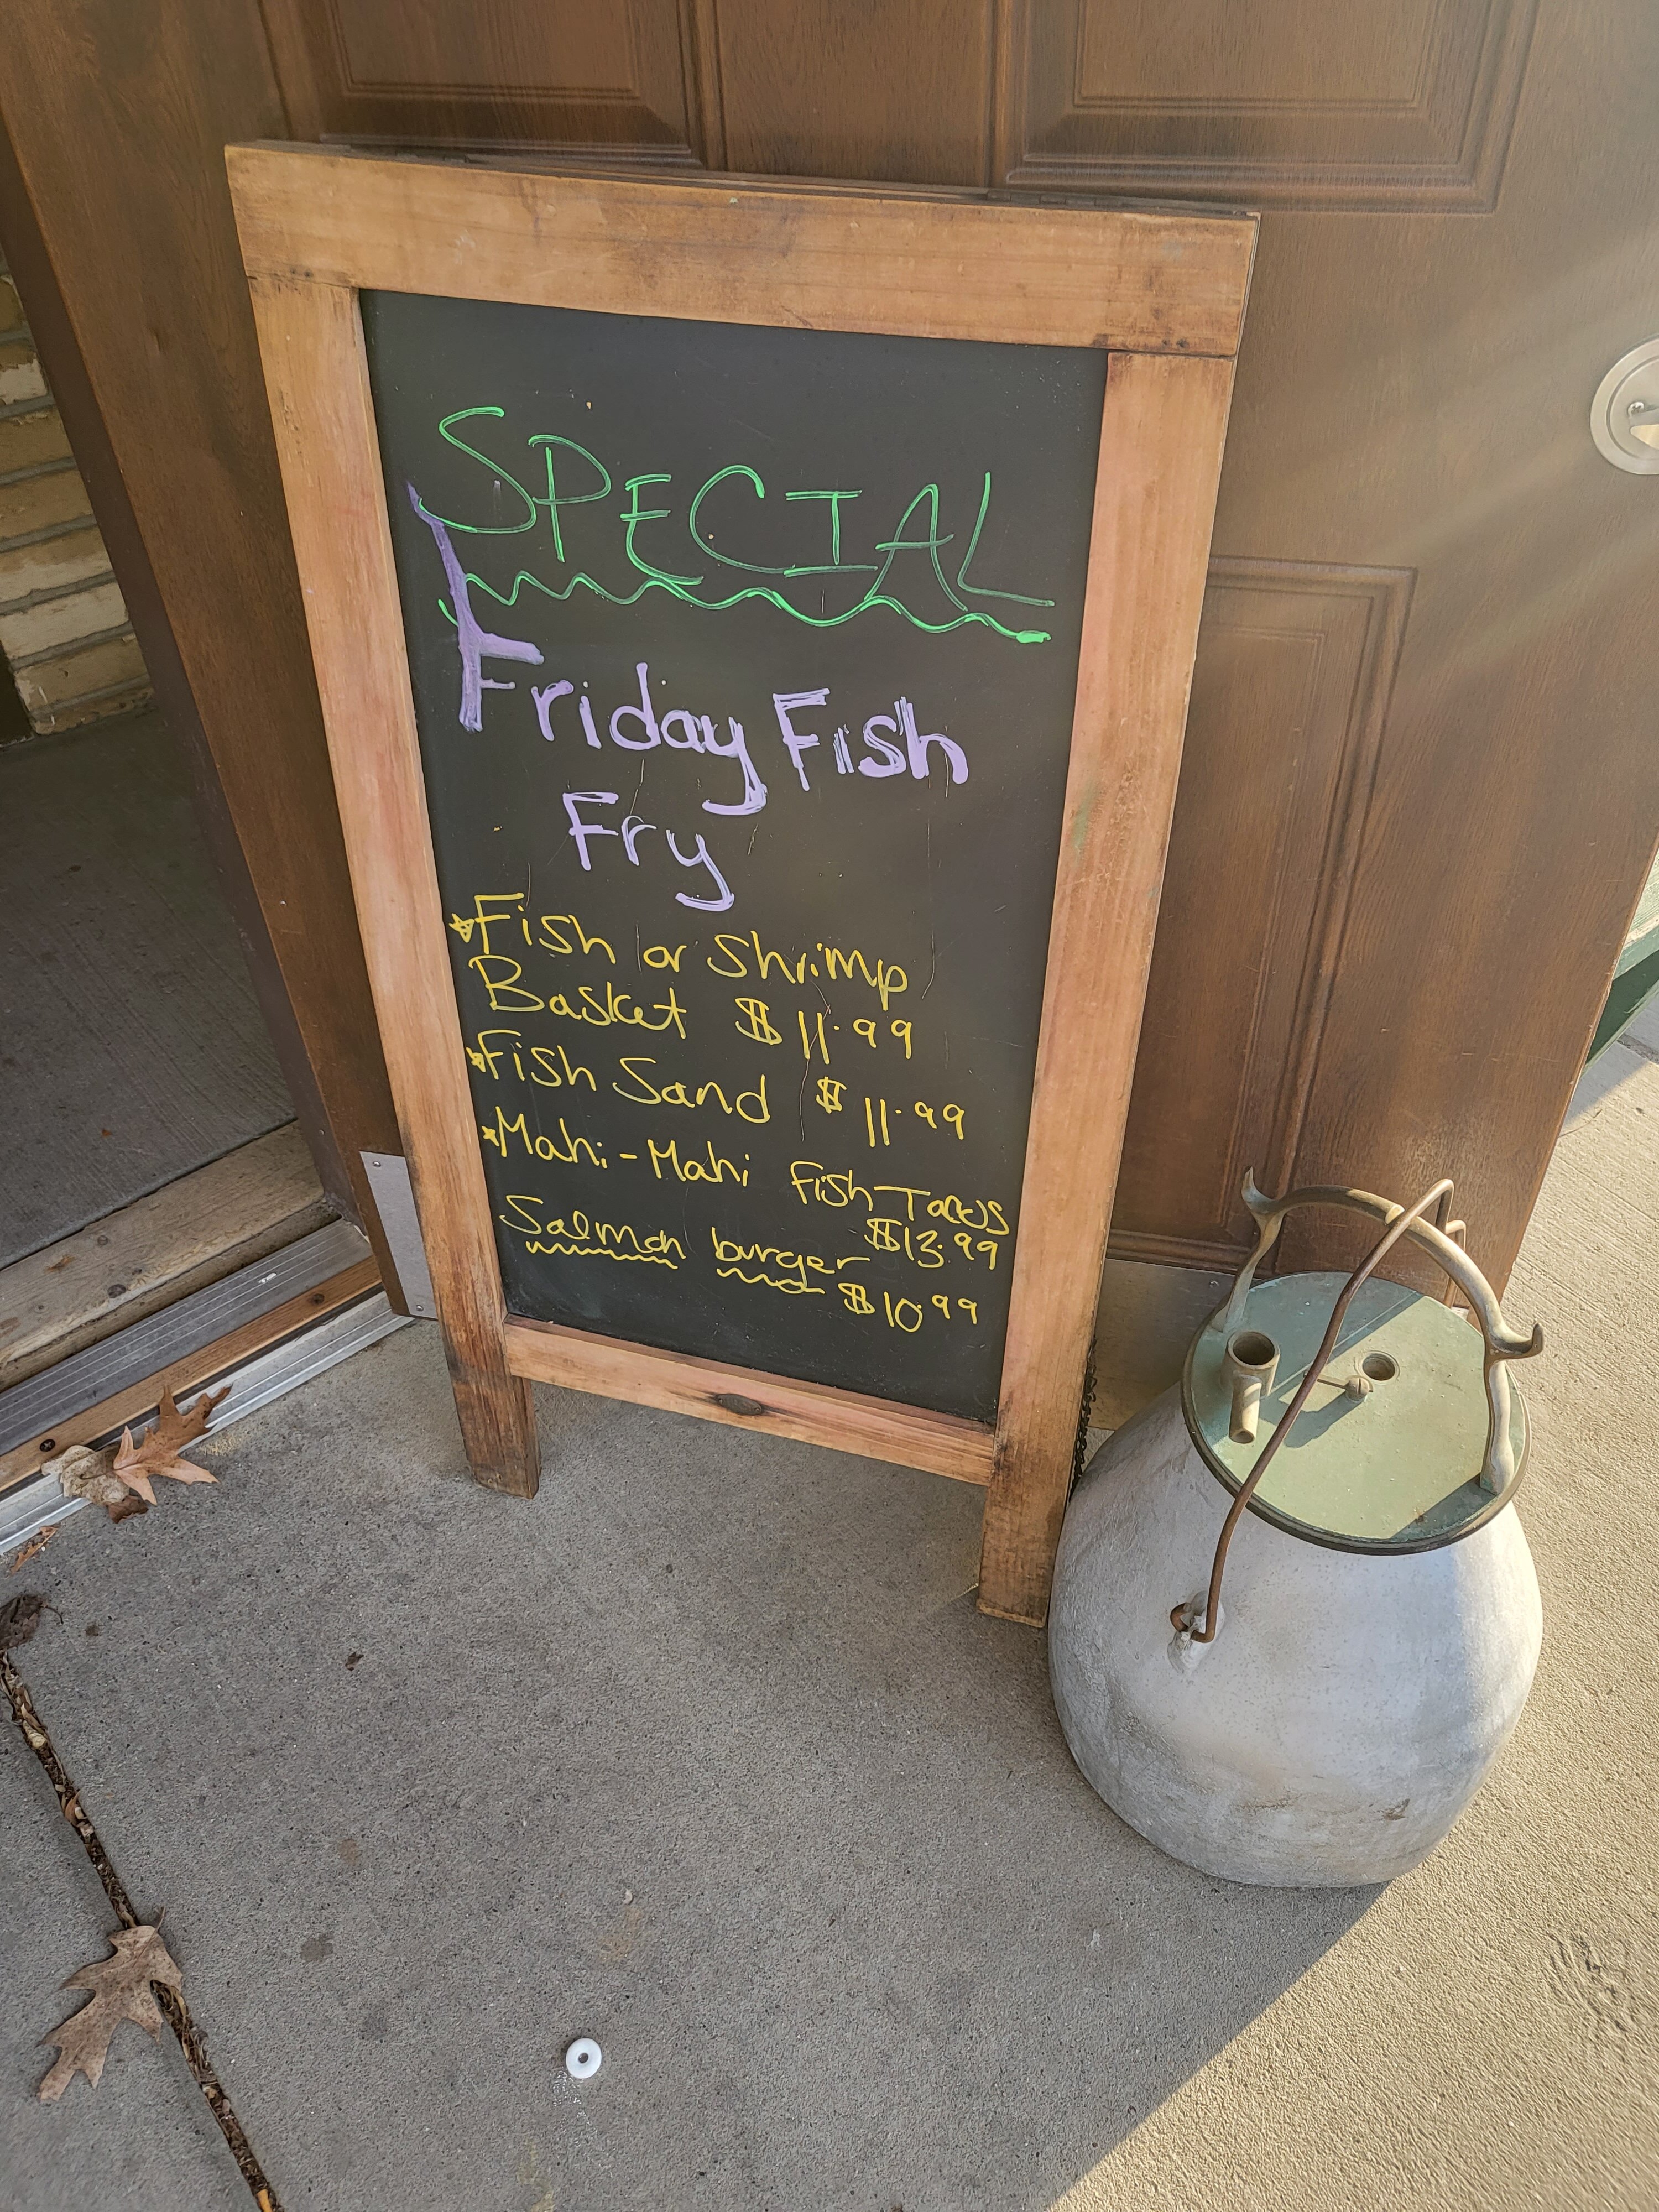 SPECIAL
Friday Fish
Fry
Fish or Shrimp
Basket $11.99
Fish Sand $11.99
Mahi-Mahi Fish Tacos
$13.99
Salmon burger
$10.99